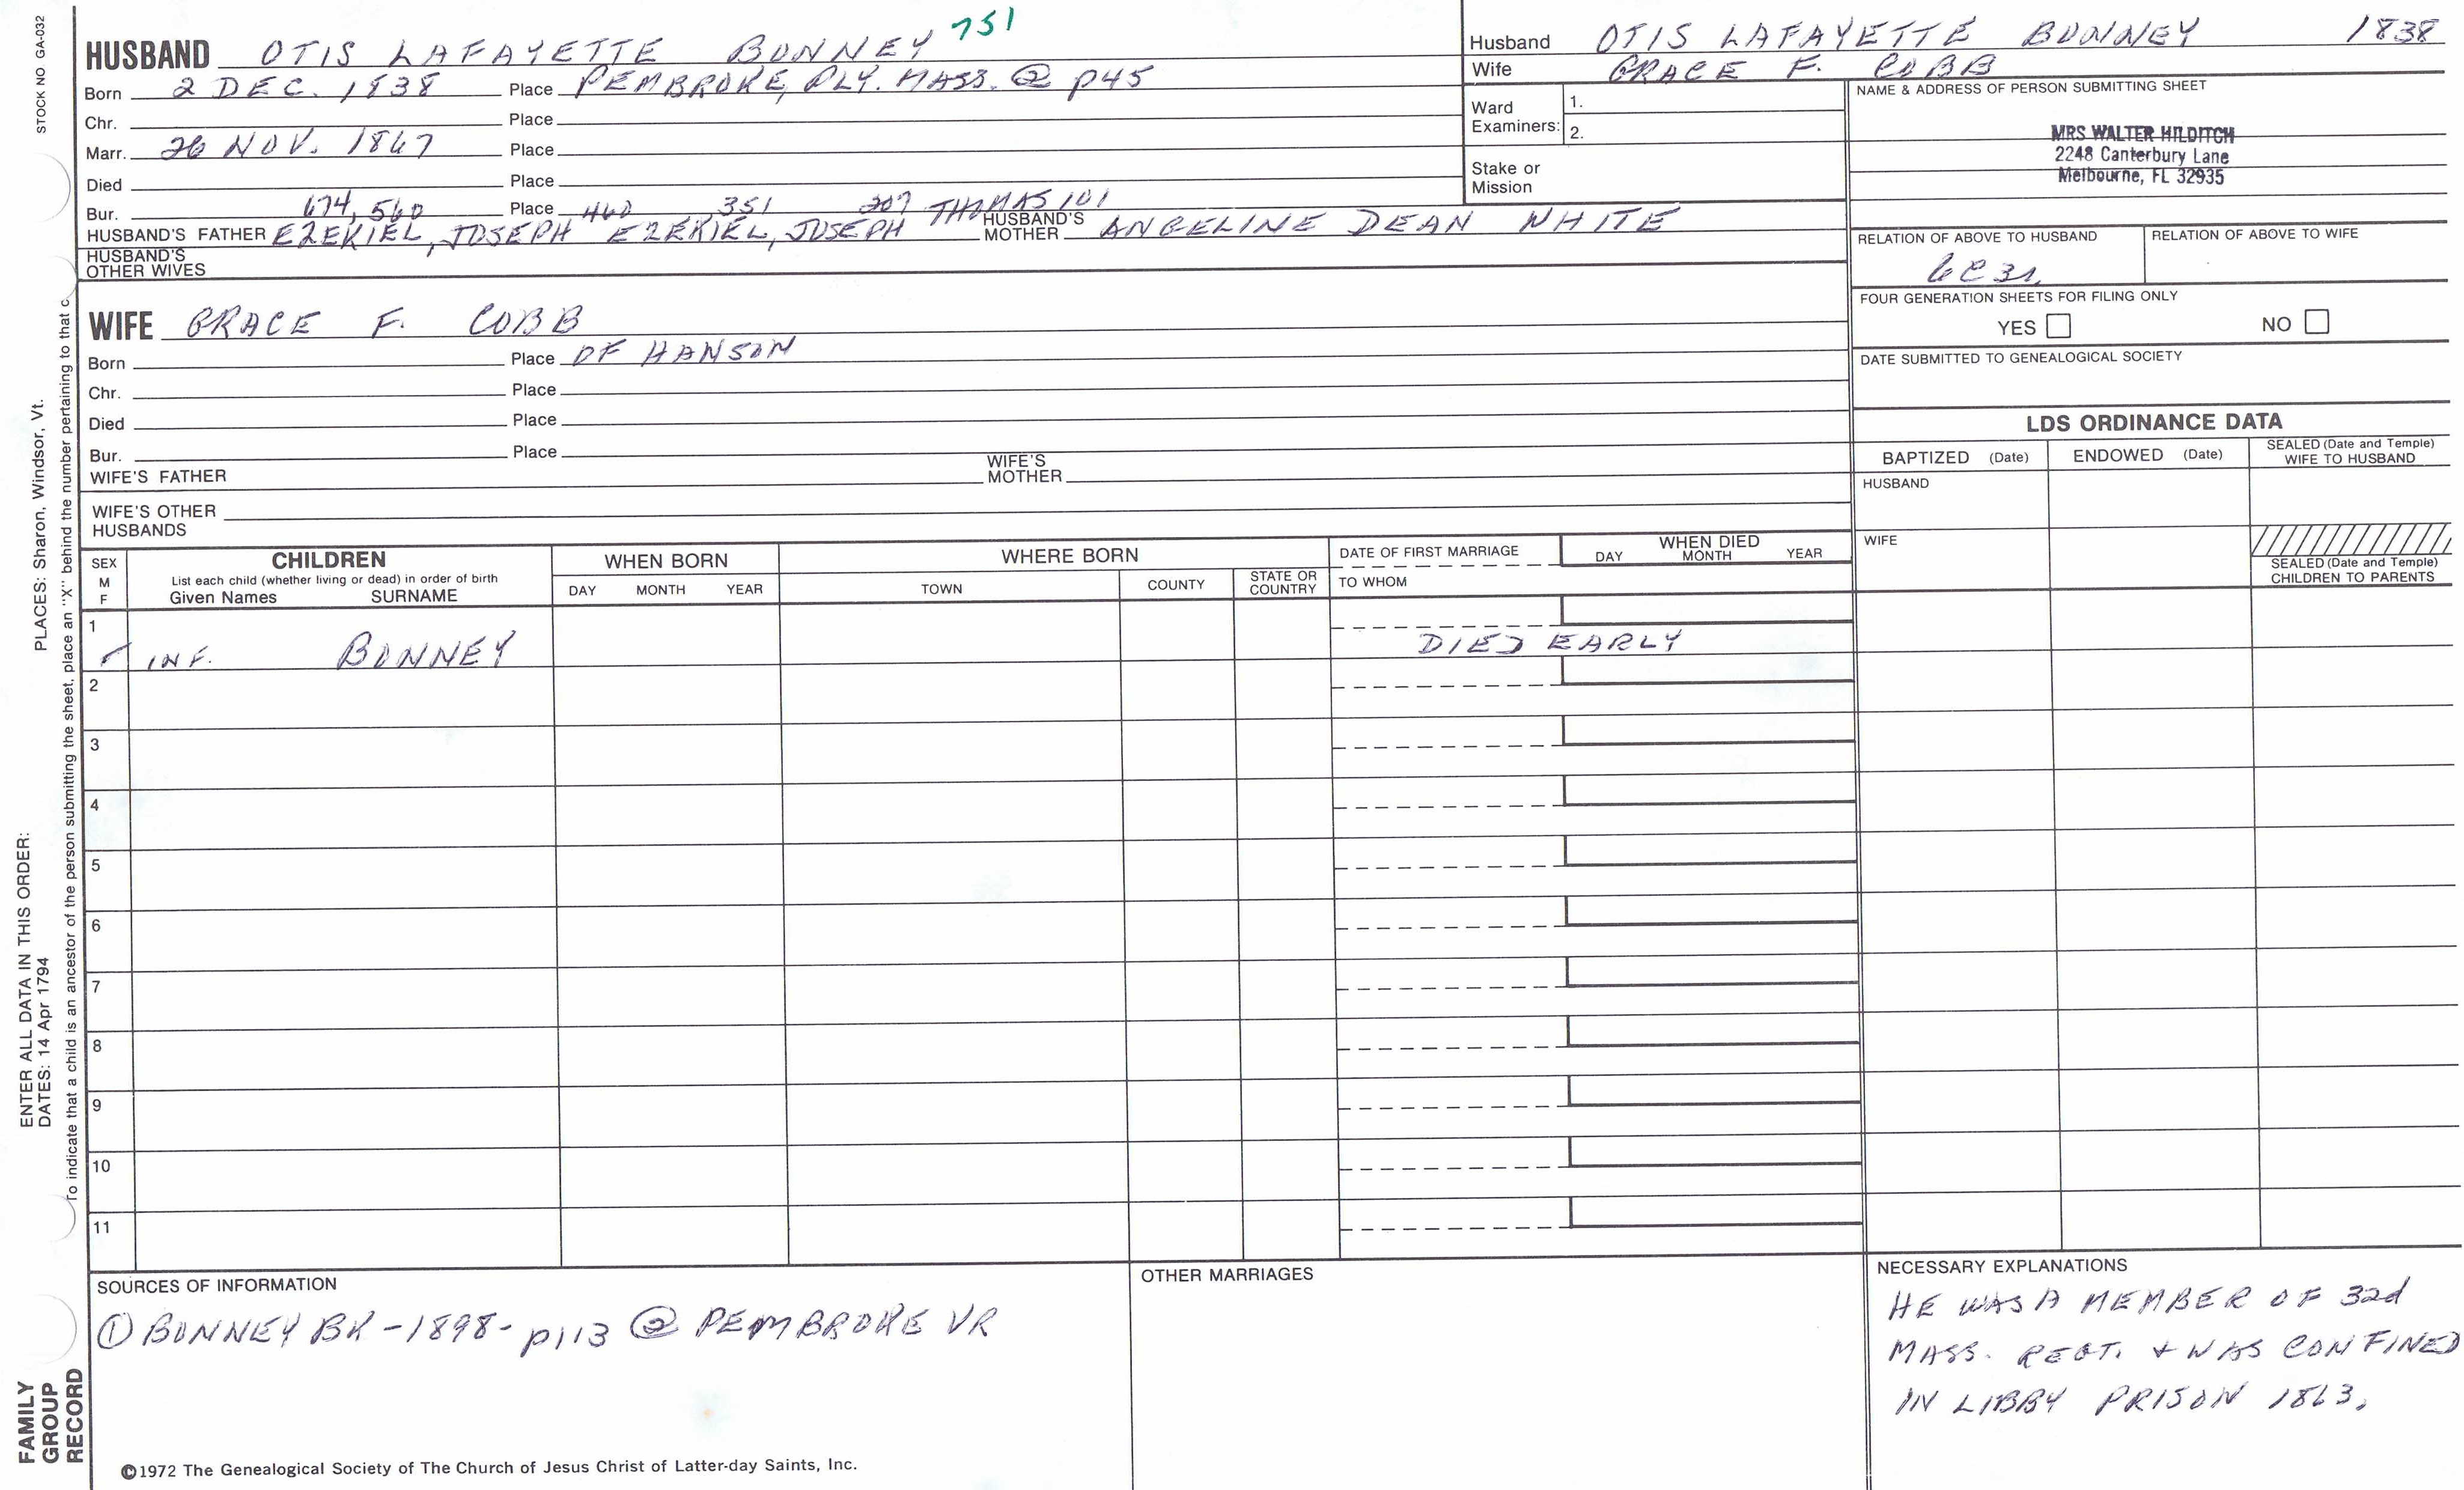 STOCK NO GA-032
HUSBAND OTIS LAFAYETTE BONNEY 751
Born 2 DEC. 1838 Place PEMBROKE, PLY. MASS. ② P45
Chr. Place
Marr. 26 NOV. 1867 Place
Died Place
Bur. 674, 560 Place 460 351 207 THOMAS 101
HUSBAND'S FATHER EZEKIEL, JOSEPH EZEKIEL, JOSEPH HUSBAND'S MOTHER ANGELINE DEAN WHITE
HUSBAND'S OTHER WIVES
Husband OTIS LAFAYETTE BONNEY 1838
Wife GRACE F. COBB
Ward Examiners: 1.
2.
Stake or Mission
NAME & ADDRESS OF PERSON SUBMITTING SHEET
MRS WALTER HILDITCH
2248 Canterbury Lane
Melbourne, FL 32935
RELATION OF ABOVE TO HUSBAND RELATION OF ABOVE TO WIFE
6C3r
FOUR GENERATION SHEETS FOR FILING ONLY
YES NO
DATE SUBMITTED TO GENEALOGICAL SOCIETY
WIFE GRACE F. COBB
Born Place OF HANSON
Chr. Place
Died Place
Bur. Place
WIFE'S FATHER WIFE'S MOTHER
WIFE'S OTHER HUSBANDS
LDS ORDINANCE DATA
BAPTIZED (Date) ENDOWED (Date) SEALED (Date and Temple) WIFE TO HUSBAND
HUSBAND
WIFE
SEALED (Date and Temple) CHILDREN TO PARENTS
SEX M F CHILDREN WHEN BORN WHERE BORN DATE OF FIRST MARRIAGE WHEN DIED
List each child (whether living or dead) in order of birth
Given Names SURNAME DAY MONTH YEAR TOWN COUNTY STATE OR COUNTRY TO WHOM DAY MONTH YEAR
1
INF. BONNEY DIED EARLY
2
3
4
5
6
7
8
9
10
11
SOURCES OF INFORMATION
① BONNEY BK - 1898 - p113 ② PEMBROKE VR
OTHER MARRIAGES
NECESSARY EXPLANATIONS
HE WAS A MEMBER OF 32d
MASS. REGT. + WAS CONFINED
IN LIBBY PRISON 1863.
©1972 The Genealogical Society of The Church of Jesus Christ of Latter-day Saints, Inc.
FAMILY
GROUP
RECORD
ENTER ALL DATA IN THIS ORDER:
DATES: 14 Apr 1794 PLACES: Sharon, Windsor, Vt.
To indicate that a child is an ancestor of the person submitting the sheet, place an "X" behind the number pertaining to that c